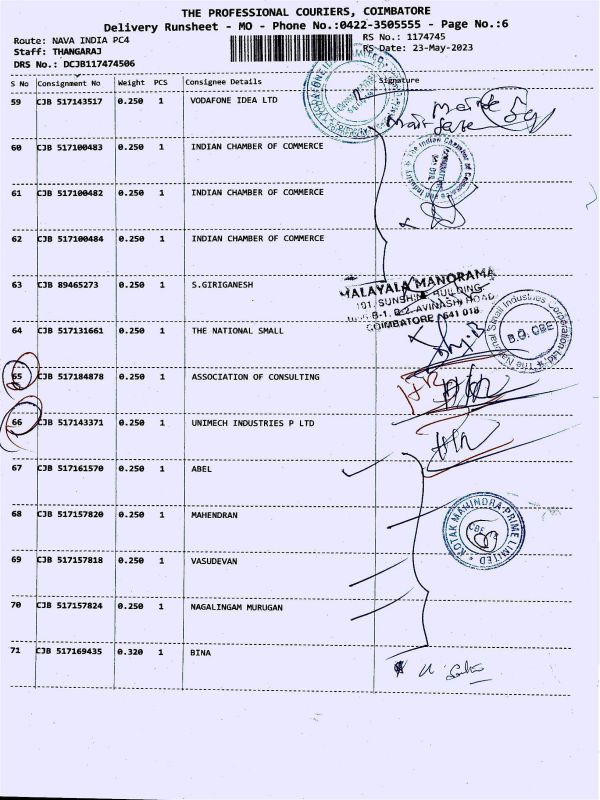 THE PROFESSIONAL COURIERS, COIMBATORE
Delivery Runsheet - MO - Phone No.:0422-3505555 - Page No.:6
Route: NAVA INDIA PC4
RS No.: 1174745
Staff: THANGARAJ
RS Date: 23-May-2023
DRS No.: DCJB117474506
S No Consignment No Weight PCS Consignee Details Signature
59 CJB 517143517 0.250 1 VODAFONE IDEA LTD
60 CJB 517100483 0.250 1 INDIAN CHAMBER OF COMMERCE
61 CJB 517100482 0.250 1 INDIAN CHAMBER OF COMMERCE
62 CJB 517100484 0.250 1 INDIAN CHAMBER OF COMMERCE
63 CJB 89465273 0.250 1 S.GIRIGANESH
MALAYALA MANORAMA
101, SUNSHINE BUILDING
AVINASHI ROAD
COIMBATORE - 641 018
64 CJB 517131661 0.250 1 THE NATIONAL SMALL
The National Small Industries Corporation Ltd.
B.O. CBE
65 CJB 517184878 0.250 1 ASSOCIATION OF CONSULTING
66 CJB 517143371 0.250 1 UNIMECH INDUSTRIES P LTD
67 CJB 517161570 0.250 1 ABEL
68 CJB 517157820 0.250 1 MAHENDRAN
KOTAK MAHINDRA PRIME LIMITED
CBE
69 CJB 517157818 0.250 1 VASUDEVAN
70 CJB 517157824 0.250 1 NAGALINGAM MURUGAN
71 CJB 517169435 0.320 1 BINA